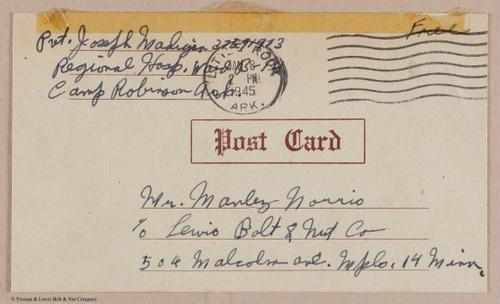 Pvt. Joseph Madigan
Free
Regional Hosp. Ward
Camp Robinson Ark.
ROCK
2 PM
1945
ARK.
Post Card
Mr. Manley Norris
℅ Lewis Bolt & Nut Co
504 Malcolm ave. Mpls. 14 Minn.
© Preston & Lewis Bolt & Nut Company